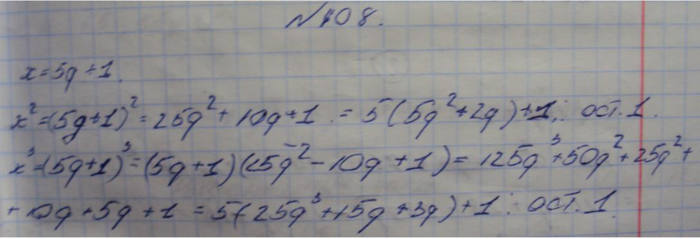 №108.
x=5q+1.
x²=(5q+1)²=25q²+10q+1=5(5q²+2q)+1; ост.1.
x³=(5q+1)³=(5q+1)(25q²-10q+1)=125q³+50q²+25q²+
+10q+5q+1=5(25q³+15q+3q)+1; ост.1.